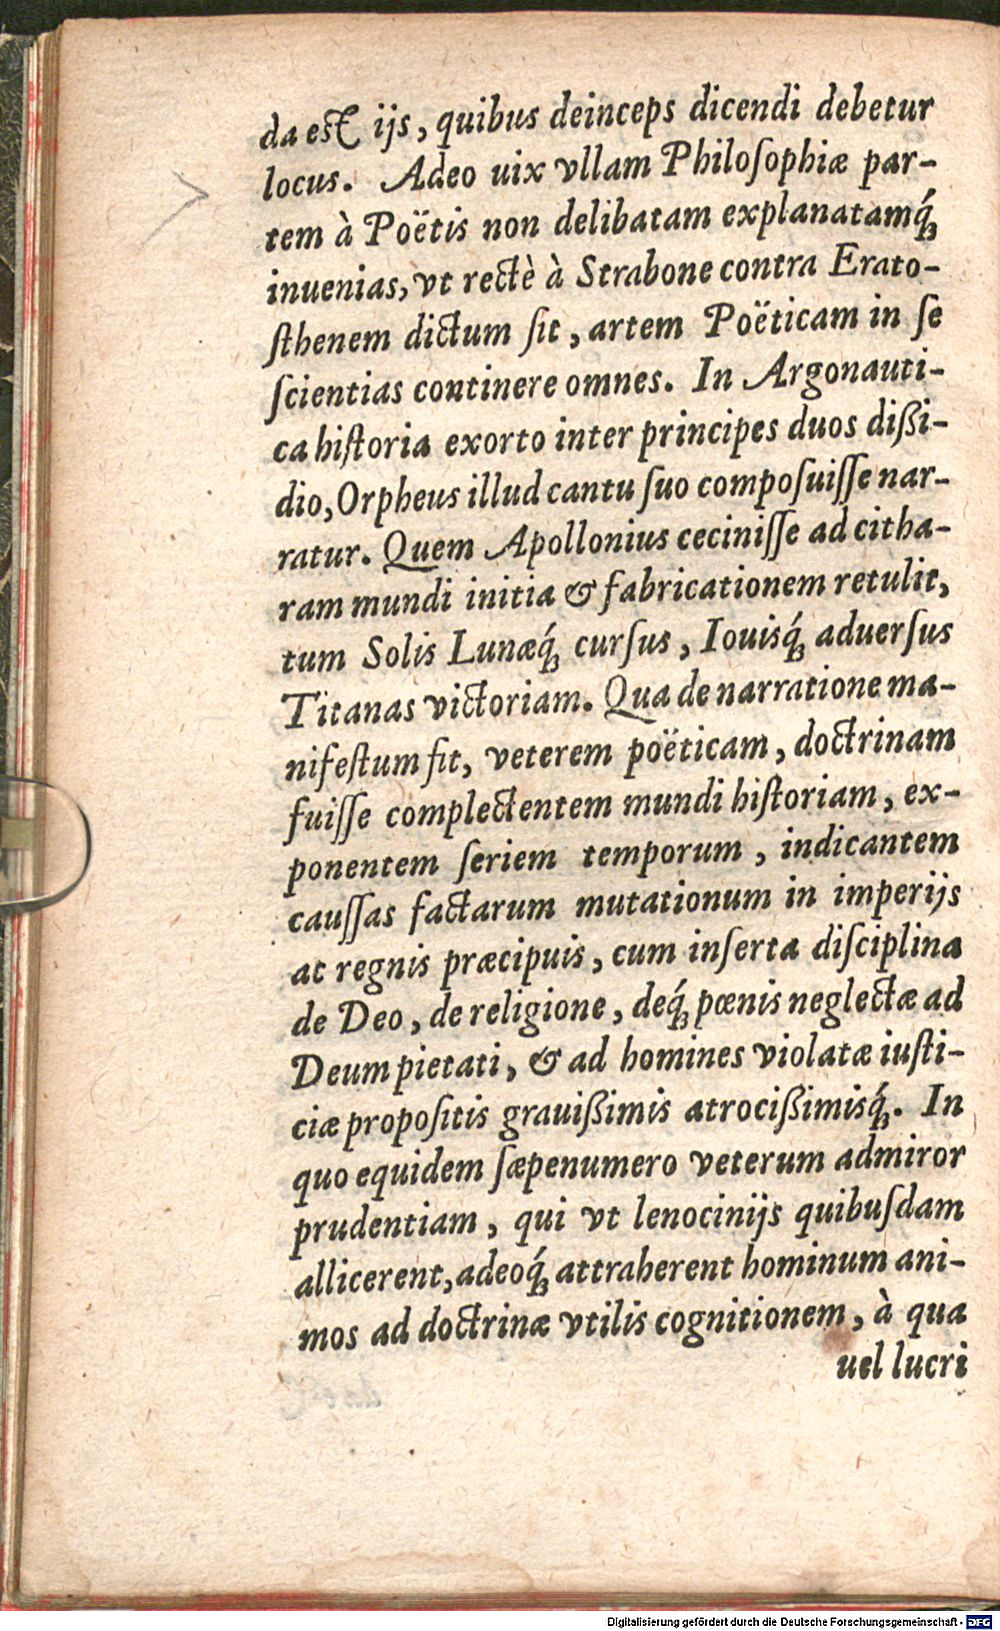 da est ijs, quibus deinceps dicendi debetur
locus. Adeo uix vllam Philoſophiæ par-
tem à Poëtis non delibatam explanatamq́ꝫ
inuenias, vt rectè à Strabone contra Erato-
ſthenem dictum ſit, artem Poëticam in ſe
ſcientias continere omnes. In Argonauti-
ca hiſtoria exorto inter principes duos dißi-
dio, Orpheus illud cantu ſuo compoſuiſſe nar-
ratur. Quem Apollonius ceciniſſe ad citha-
ram mundi initia & fabricationem retulit,
tum Solis Lunæq́ꝫ curſus, Iouisq́ꝫ aduerſus
Titanas victoriam. Qua de narratione ma-
nifeſtum fit, veterem poëticam, doctrinam
fuiſſe complectentem mundi hiſtoriam, ex-
ponentem ſeriem temporum, indicantem
cauſſas factarum mutationum in imperijs
ac regnis præcipuis, cum inſerta diſciplina
de Deo, de religione, deq́ꝫ pœnis neglectæ ad
Deum pietati, & ad homines violatæ iuſti-
ciæ propoſitis grauißimis atrocißimisq́ꝫ. In
quo equidem ſæpenumero veterum admiror
prudentiam, qui vt lenocinijs quibuſdam
allicerent, adeoq́ꝫ attraherent hominum ani-
mos ad doctrinæ vtilis cognitionem, à qua
uel lucri
Digitalisierung gefördert durch die Deutsche Forschungsgemeinschaft - DFG